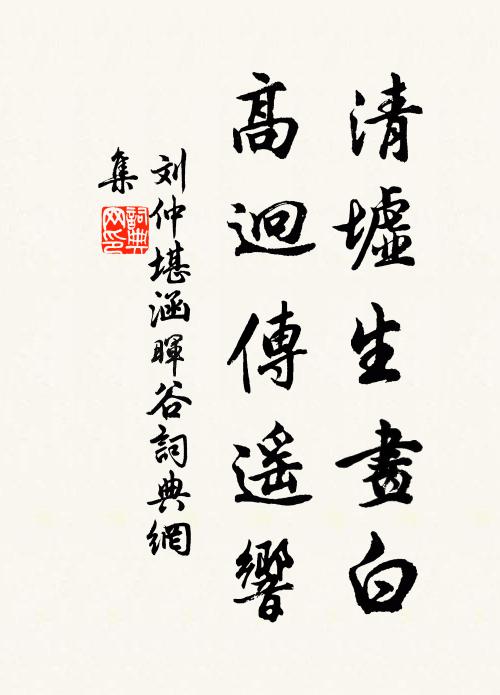 清墟生晝白
高迥傳遥響
刘仲堪涵暉谷詞典網
集
詞典
网印